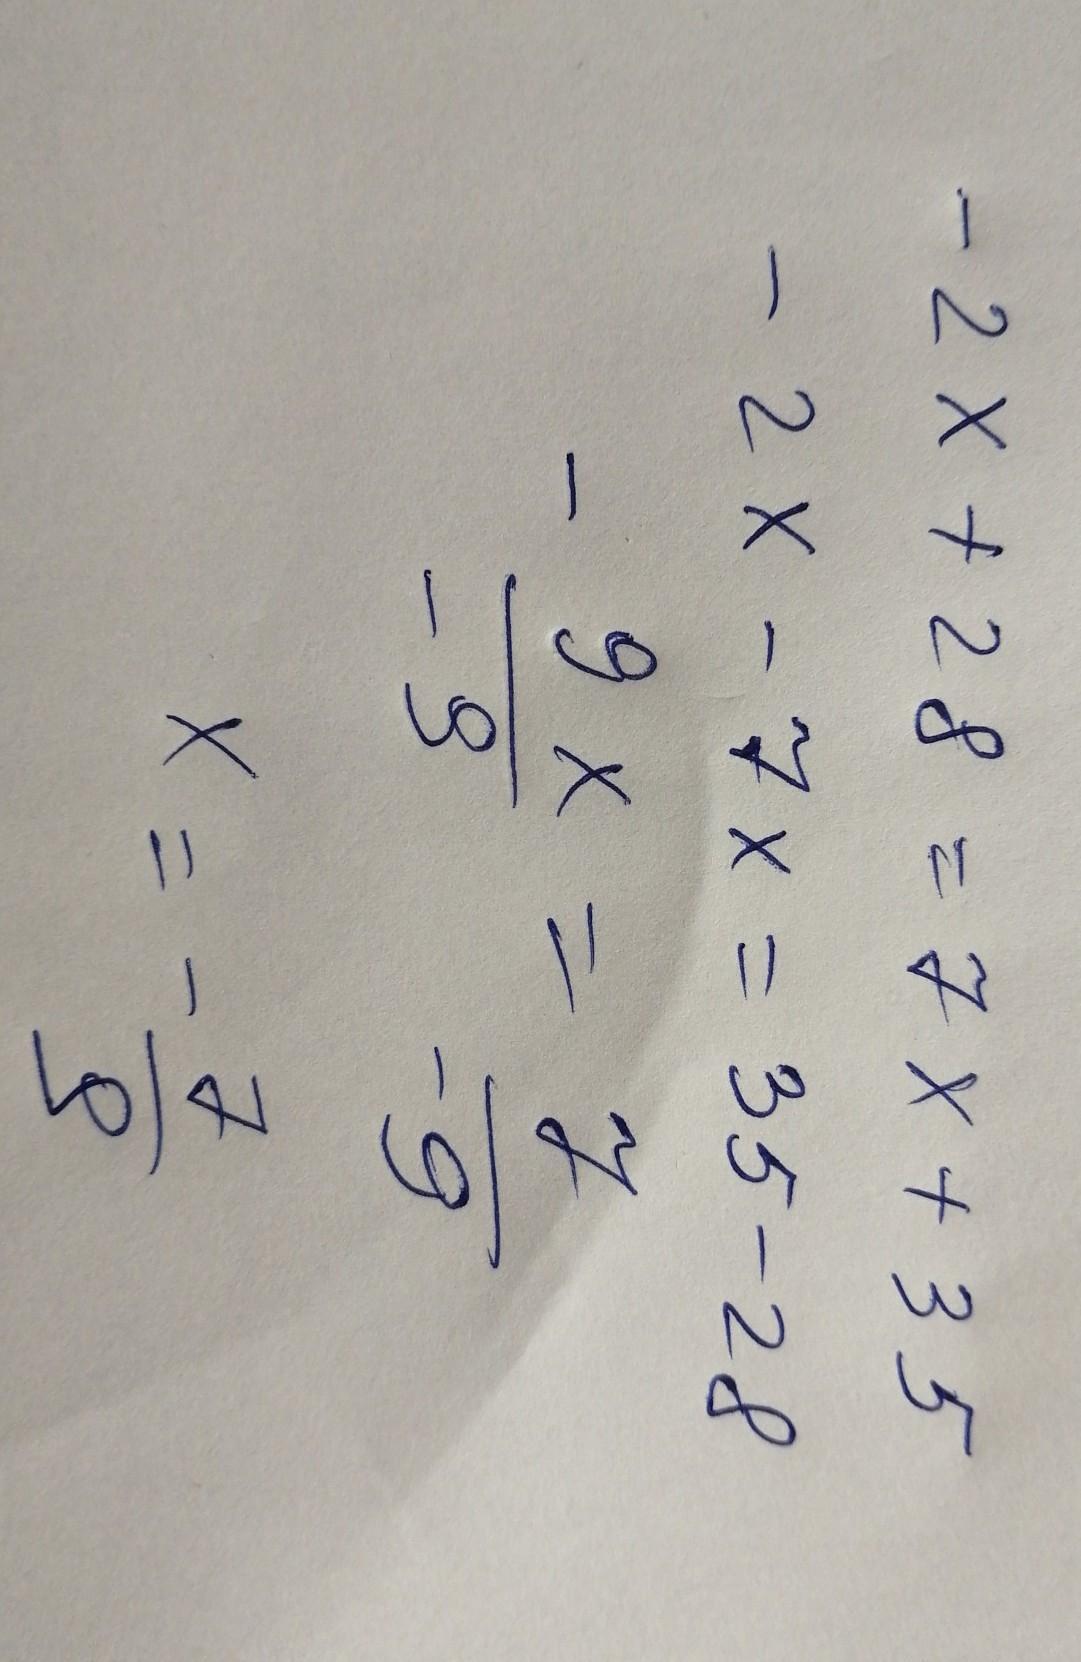 -2x+28=7x+35
-2x-7x=35-28
-9x/-9=7/-9
x=-7/9